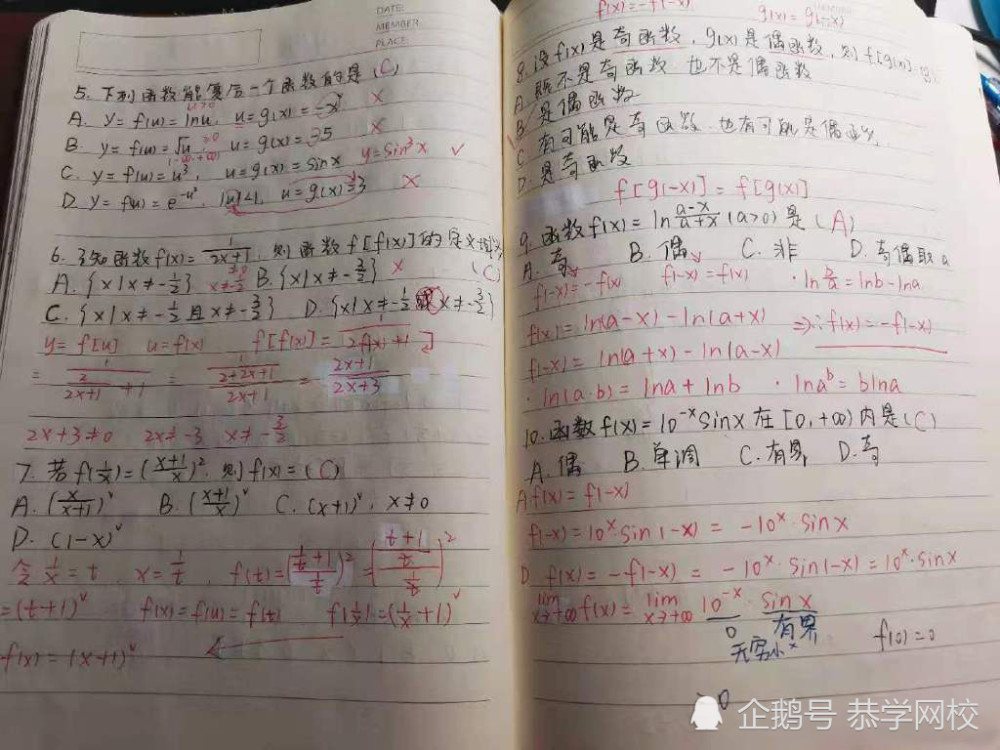 DATE:
MEMBER
PLACE:
5. 下列函数能复合一个函数的是(C)
A. y=f(u)=lnu, u=g(x)=-x² ×
B. y=f(u)=√u, u=g(x)=-35 ×
C. y=f(u)=u³, u=g(x)=sinx y=sin³x ✓
D. y=f(u)=e^{-u²}, |u|<1, u=g(x)=3 ×
6. 已知函数f(x)=1/(2x+1), 则函数f[f(x)]的定义域为
A. {x|x≠-1/2} B. {x|x≠-3/2} × (C)
C. {x|x≠-1/2且x≠-3/2} D. {x|x≠-1/2或x≠-3/2}
y=f[u] u=f(x) f[f(x)]=1/(2f(x)+1)
=1/(2/(2x+1)+1)=1/((2+2x+1)/(2x+1))=(2x+1)/(2x+3)
2x+3≠0 2x≠-3 x≠-3/2
7. 若f(1/x)=((x+1)/x)², 则f(x)=(C)
A. (x/(x+1))² B. ((x+1)/x)² C. (x+1)², x≠0
D. (1-x)²
令1/x=t, x=1/t, f(t)=((1/t+1)/(1/t))²=(((t+1)/t)/(1/t))²
=(t+1)² f(x)=f(u)=f(t) f(1/x)=(1/x+1)²
f(x)=(x+1)²
f(x)=-f(-x) g(x)=g(-x)
8. 设f(x)是奇函数, g(x)是偶函数, 则f[g(x)]
A. 既不是奇函数, 也不是偶函数
B. 是偶函数
C. 有可能是奇函数, 也有可能是偶函数
D. 是奇函数
f[g(-x)]=f[g(x)]
9. 函数f(x)=ln (a-x)/(a+x) (a>0)是(A)
A. 奇 B. 偶 C. 非 D. 奇偶取a
f(-x)=-f(x) f(-x)=f(x) ·ln b/a=lnb-lna
f(x)=ln(a-x)-ln(a+x) ⇒∴f(x)=-f(-x)
f(-x)=ln(a+x)-ln(a-x)
·ln(a·b)=lna+lnb ·lna^b=blna
10. 函数f(x)=10^{-x}sinx在[0,+∞)内是(C)
A. 偶 B. 单调 C. 有界 D. 奇
A f(x)=f(-x)
f(-x)=10^x·sin(-x)=-10^x·sinx
D. f(x)=-f(-x)=-10^x·sin(-x)=10^x·sinx
lim x→+∞ f(x)=lim x→+∞ 10^{-x}·sinx
0 有界 f(0)=0
无穷小×
=0
企鹅号 恭学网校